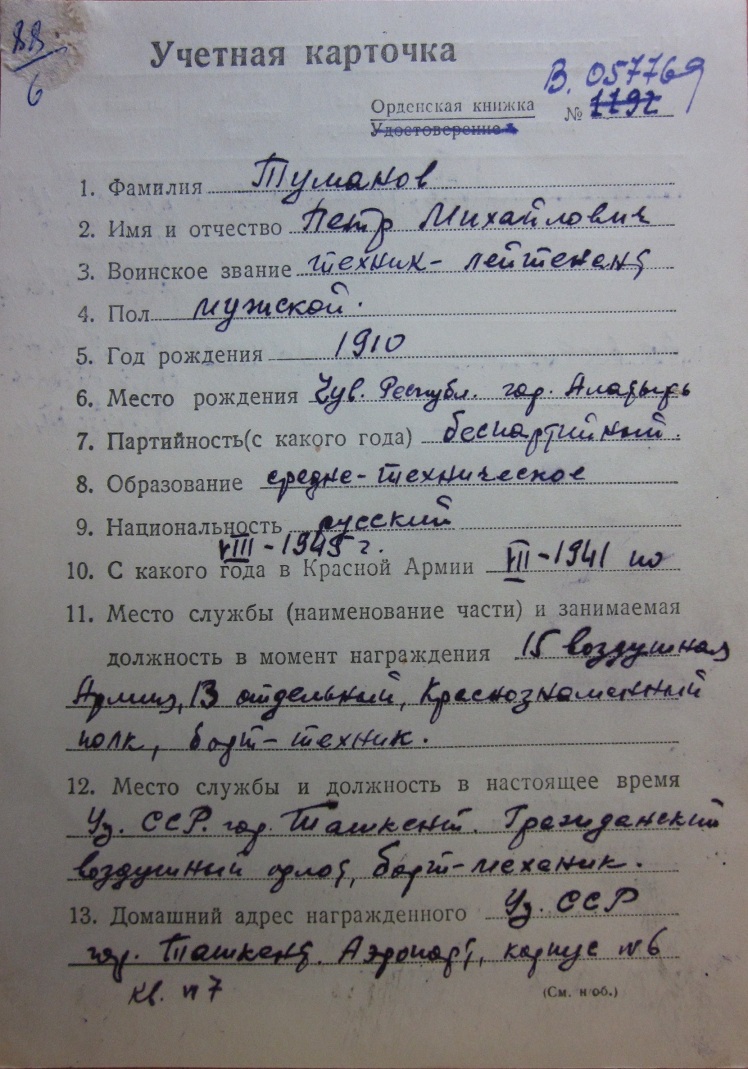 88
6
Учетная карточка
В. 057769
Орденская книжка
Удостоверение
№ 1192
1. Фамилия Туманов
2. Имя и отчество Петр Михайлович
3. Воинское звание техник-лейтенант
4. Пол мужской.
5. Год рождения 1910
6. Место рождения Чув. Республ. гор. Алатырь
7. Партийность(с какого года) беспартийный.
8. Образование средне-техническое
9. Национальность русский
VIII-1945 г.
10. С какого года в Красной Армии VII-1941 по
11. Место службы (наименование части) и занимаемая
должность в момент награждения 15 воздушная
Армия, 13 отдельный, Краснознаменный
полк, борт-техник.
12. Место службы и должность в настоящее время
Уз. ССР. гор. Ташкент. Гражданский
воздушный флот, борт-механик.
13. Домашний адрес награжденного Уз. ССР
гор. Ташкент. Аэропорт, корпус №6
кв. №7
(См. н/об.)